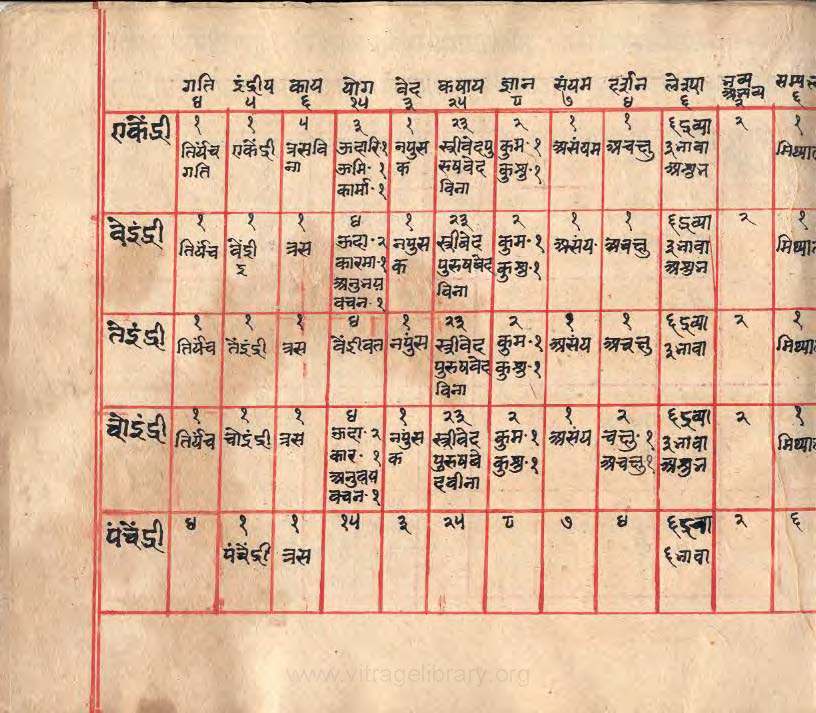 गति इंद्रीय काय योग वेद कषाय ज्ञान संयम दर्शन लेश्या भव्य अभव्य सम्यक्त
४ ५ ६ १५ ३ २५ ८ ७ ४ ६ २ ६
एकेंद्री १ १ ५ ३ १ २३ २ १ १ ६ द्रव्या २ १
तिर्यंच एकेंद्री त्रसवि ऊदारि·१ नपुंस स्त्रीवेदपु कुम·१ असंयम अचक्षु ३ भावा मिथ्यात
गति ना ऊमि·१ क रुषवेद कुश्रु·१ अशुभ
कार्मा·१ विना
वेइंद्री १ १ १ ४ १ २३ २ १ १ ६ द्रव्या २ १
तिर्यंच वेंद्री त्रस ऊदा·२ नपुंस स्त्रीवेद कुम·१ असंय· अचक्षु ३ भावा मिथ्यात
इ कारमा·१ क पुरुषवेद कुश्रु·१ अशुभ
अनुभय विना
वचन·१
तेइंद्री १ १ १ ४ १ २३ २ १ १ ६ द्रव्या २ १
तिर्यंच तेंइंद्री त्रस वेंद्रीवत नपुंस स्त्रीवेद कुम·१ असंय अचक्षु ३ भावा मिथ्यात
पुरुषवेद कुश्रु·१
विना
चोइंद्री १ १ १ ४ १ २३ २ १ २ ६ द्रव्या २ १
तिर्यंच चोइंद्री त्रस ऊदा·२ नपुंस स्त्रीवेद कुम·१ असंय चक्षु·१ ३ भावा मिथ्यात
कार·१ क पुरुषवे कुश्रु·१ अचक्षु१ अशुभ
अनुवय दवीना
वचन·१
पंचेंद्री ४ १ १ १५ ३ २५ ८ ७ ४ ६ द्रवा २ ६
पंचेंद्री त्रस ६ भावा
www.vitragelibrary.org